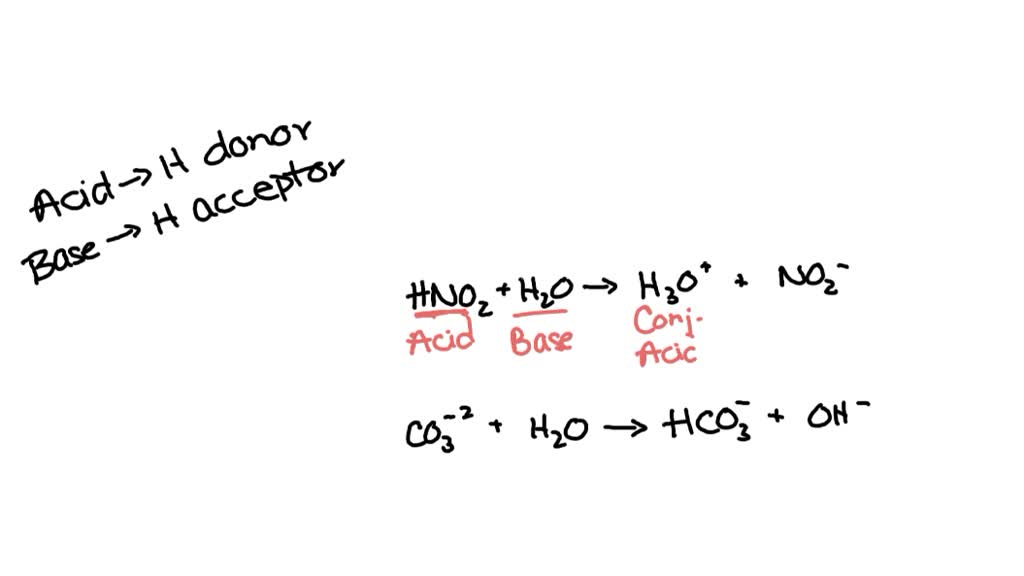 Acid → H donor
Base → H acceptor
HNO₂ + H₂O → H₃O⁺ + NO₂⁻
Acid Base Conj.
Acic
CO₃⁻² + H₂O → HCO₃⁻ + OH⁻